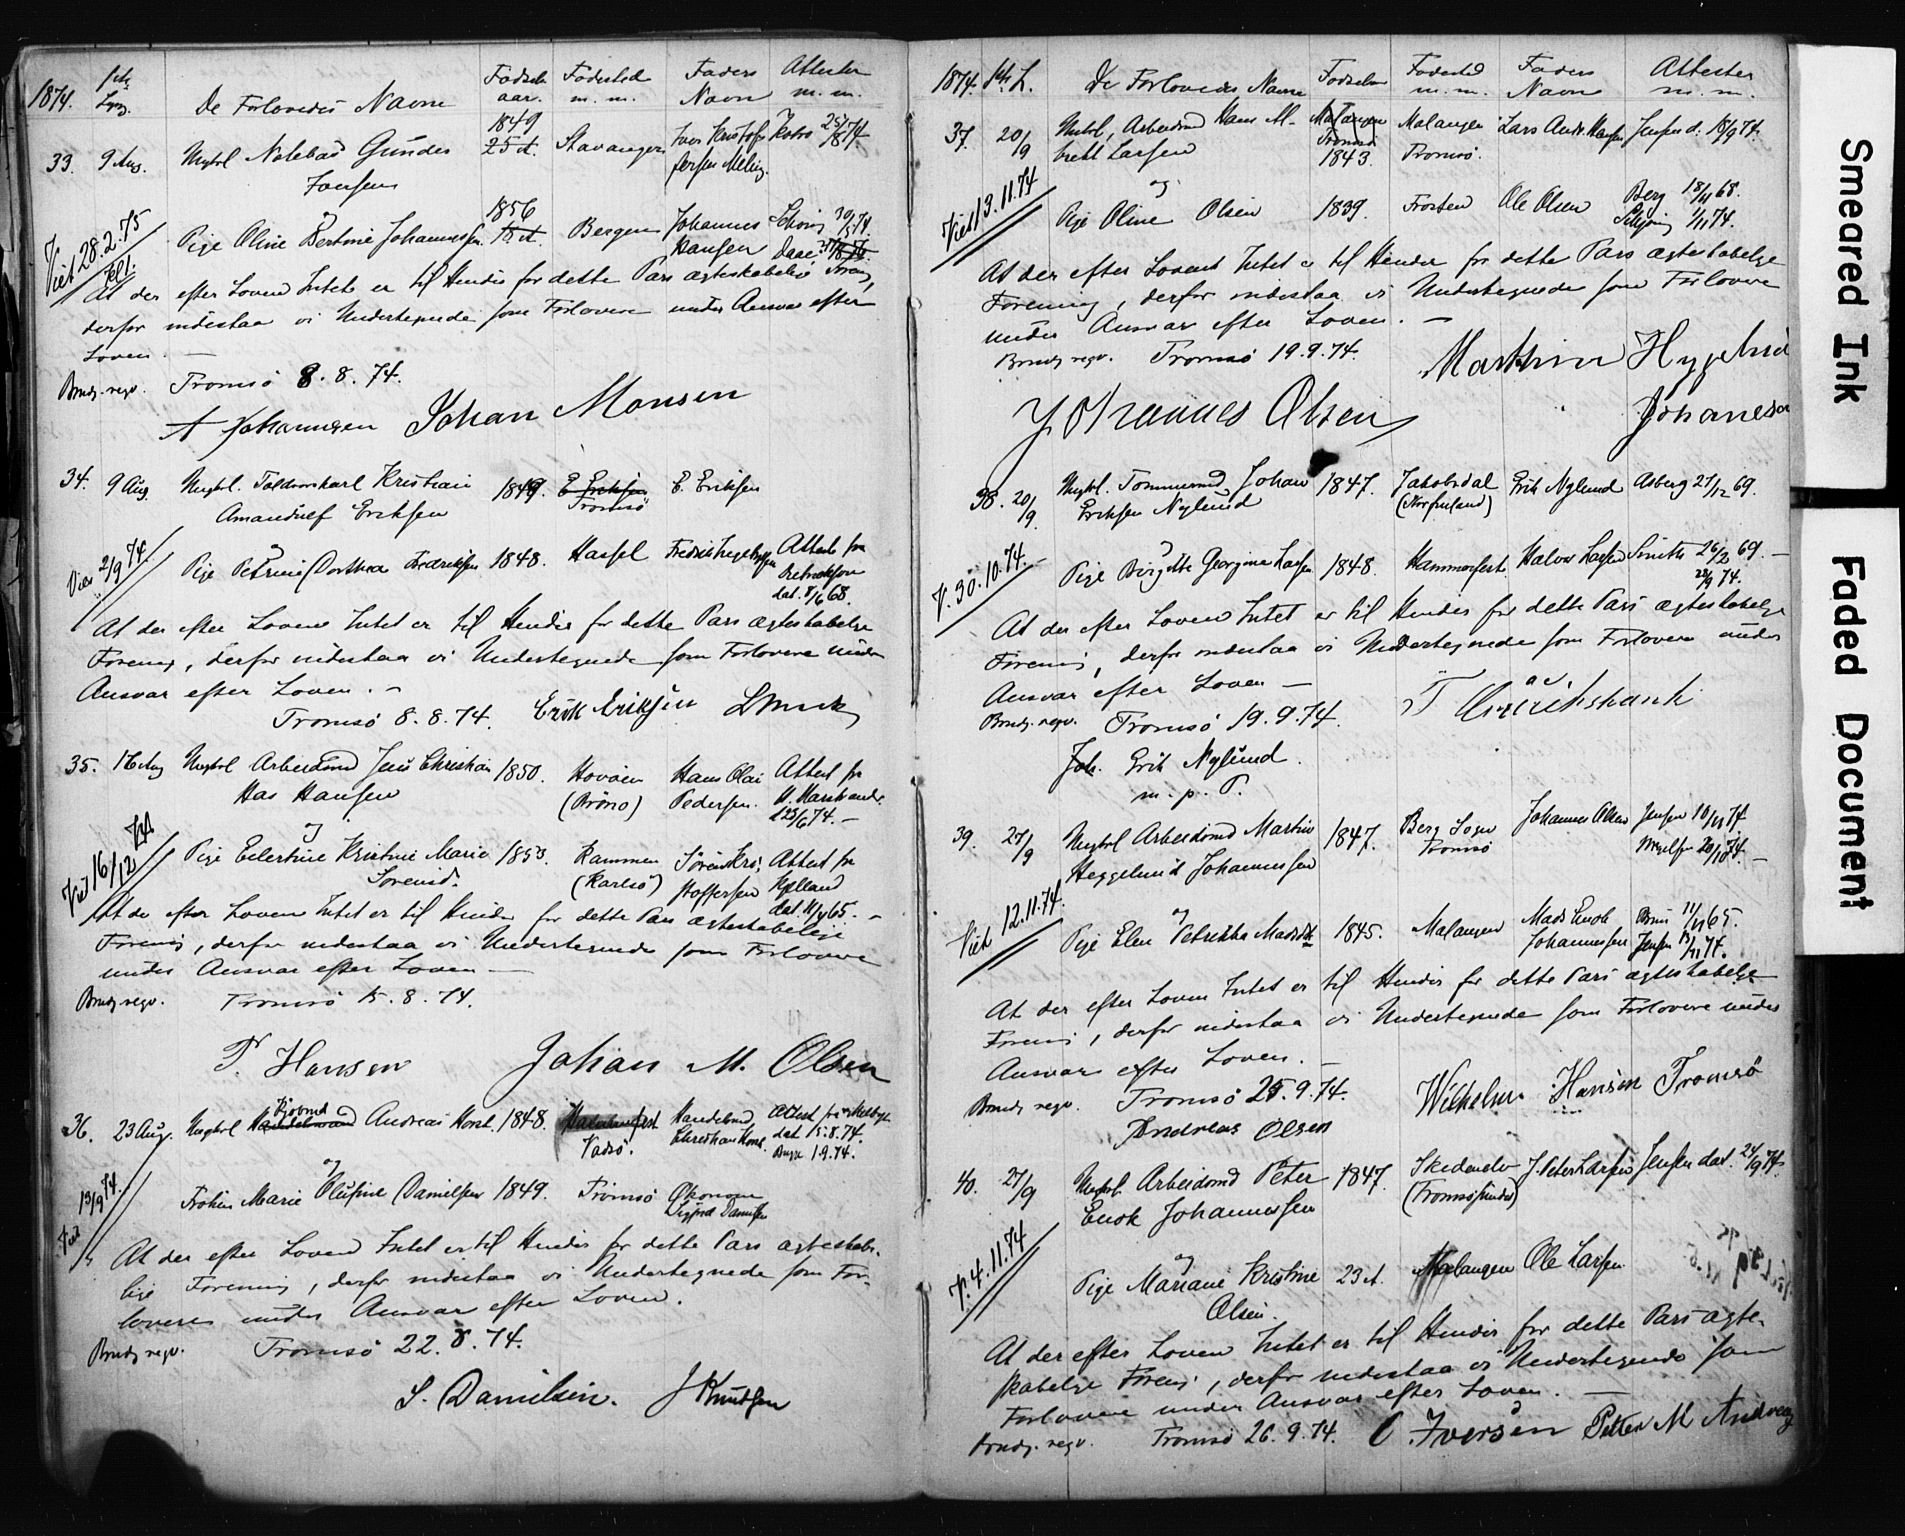 1874. 1ste Lysn. De Forlovedes Navne Fødsels aar. Fødested m. m. Faders Navn Attester m. m.
33. 9 Aug. Ungkrl Notebas Gunder Iversen 1849 25 A. Stavanger
og
Pige Oline Bertine Johannessen 1856 18 A. Bergen Johannes Hansen
Viet 28.2.75
At der efter Loven Intet er til Hinder for dette Pars ægteskabelige Forening,
derfor indestaa vi Undertegnede som Forlovere under Ansvar efter
Loven. —
Brudg. regv. Tromsø 8. 8. 74.
A Johannesen Johan Monsen
34. 9 Aug. Ungkrl. Toldrorskarl Kristian 1849. E Eriksen Tromsø E. Eriksen
Amandus Eriksen
og
Pige Petrine Dorthea Fredriksen 1848. Hassel Attest fra
dat. 8/6 68.
Viet 2/9 74.
At der efter Loven Intet er til Hinder for dette Pars ægteskabelige
Forening, derfor indestaa vi Undertegnede som Forlovere under
Ansvar efter Loven. —
Tromsø 8. 8. 74. Erik Eriksen
35. 16 Aug Ungkrl Arbeidsmd Jens Christian 1850. Havøen (Brønø) Hans Olai Pedersen. Attest fra
Has Hansen
d 23/6 74. —
og
Pige Edertine Kristine Marie 1853. Rammen (Karlsø) Sørenskri- stoffersen Attest fra Kjelland
Sørensd. dat. 11/4 65. —
Viet 16/12 74
At der efter Loven Intet er til Hinder for dette Pars ægteskabelige
Forening, derfor indestaa vi Undertegnede som Forlovere
under Ansvar efter Loven —
Brudg regv. Tromsø 15. 8. 74.
P. Hansen Johan M. Olsen
36. 23 Aug. Ungkrl Handelsmand Andreas Horst 1848. Vadsø. Handelsmd Christian Horst. Attest fra
dat 15. 8. 74.
1. 9. 74.
og
Frøken Marie Olufine Danielsen 1849. Tromsø Økonom Sigfred Danielsen
Viet 13/9 74.
At der efter Loven Intet er til Hinder for dette Pars ægteskabe-
lige Forening, derfor indestaa vi Undertegnede som For-
lovere under Ansvar efter Loven.
Brudg regv. Tromsø 22. 8. 74.
S. Danielsen. J Knudsen
1874. 1ste L. De Forlovedes Navne Fødselsaar Fødested m. m. Faders Navn Attester m. m.
37. 20/9 Ungkrl, Arbeidsmd Hans M- Malangen Tromsø 1843. Malangen Tromsø. Lars Andr. Hansen Jensen d. 18/9 74.
brekt Larsen
og
Pige Oline Olsen 1839. Trosten Ole Olsen Berg 18/11 68.
1/11 74.
Viet 13. 11. 74
At der efter Loven Intet er til Hinder for dette Pars ægteskabelige
Forening, derfor indestaa vi Undertegnede som Forlovere
under Ansvar efter Loven. —
Brudg regv. Tromsø 19. 9. 74. Marthin Heggelund
Johannes Olsen Johanesen
38. 20/9. Ungkrl. Tømmermd Johan 1847. Jakobsdal (Norfinland) Erik Nylund Asberg 27/12 69.
Eriksen Nylund
og
Pige Birgitte Georgine Larsen 1848. Hammerfest Halvor Larsen Smith 26/2 69. —
22/9 74.
V. 30. 10. 74.
At der efter Loven Intet er til Hinder for dette Pars ægteskabelige
Forening, derfor indestaa vi Undertegnede som Forlovere under
Ansvar efter Loven —
Brudg. regv. Tromsø 19. 9. 74.
Joh. Erik Nylund.
m. p. P.
39. 27/9 Ungkrl Arbeidsmd Martin 1847. Berg Sogn Tromsø Johannes Olsen Jensen 10/11 74
Heggelund Johannessen
og
Pige Elen Petrikka Madsdt 1845. Malangen Mads Enok Johannessen 11/11 65.
Jensen 13/11 74.
Viet 12. 11. 74.
At der efter Loven Intet er til Hinder for dette Pars ægteskabelige
Forening, derfor indestaa vi Undertegnede som Forlovere under
Ansvar efter Loven. —
Brudg regv. Tromsø 25. 9. 74. Wilhelm Hansen Tromsø
Andreas Olsen
40. 27/9 Ungkrl. Arbeidsmd Peter 1847. Skedenelv (Tromsøsundet) J. Peter Larsen Jensen dat. 24/9 74.
Enok Johannessen
og
Pige Mariane Kristine 23 A. Malangen Ole Larsen
Olsen.
V. 4. 11. 74
At der efter Loven Intet er til Hinder for dette Pars ægte-
skabelige Foreng, derfor indestaa vi Undertegnede som
Forlovere under Ansvar efter Loven. —
Brudg. regv. Tromsø 26. 9. 74. O Iversen Petter M Andreas
Smeared Ink
Faded Document